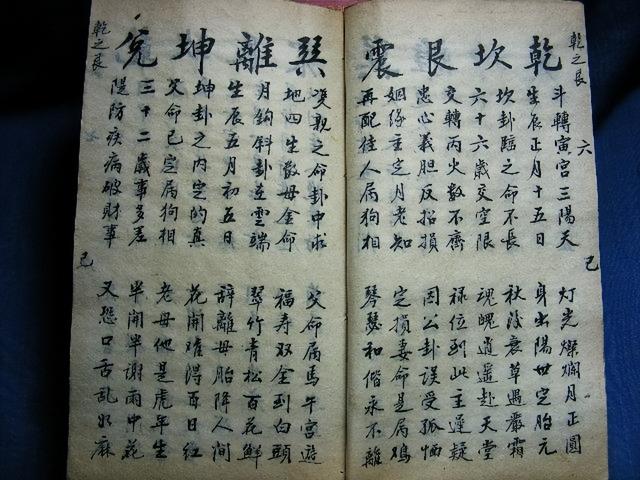 乾之艮
六
己
乾坎艮震
斗轉寅宮三陽天
灯光燦爛月正圓
生辰正月十五日
身出陽世定胎元
坎卦臨之命不長
秋後衰草遇嚴霜
六十六歲交空限
魂魄逍遥赴天堂
交轉丙火數不齊
禄位到此主遲疑
忠心義胆反招損
因公卦誤受孤恓
姻緣主定月老知
定損妻命是属鸡
再配佳人属狗相
琴瑟和偕永不離
巽離坤兌
雙親之命卦中求
父命属馬午宮遊
地四生散母金命
福寿双全到白頭
月鈎斜卦在雲端
翠竹青松百花鮮
生辰五月初五日
辞離母胎降人間
坤卦之内定的真
花開难得百日红
父命已定属狗相
老母他是虎年生
三十二歲事多差
半開半謝雨中花
隄防疾病破財事
又恐口舌乱如麻
乾之艮
己